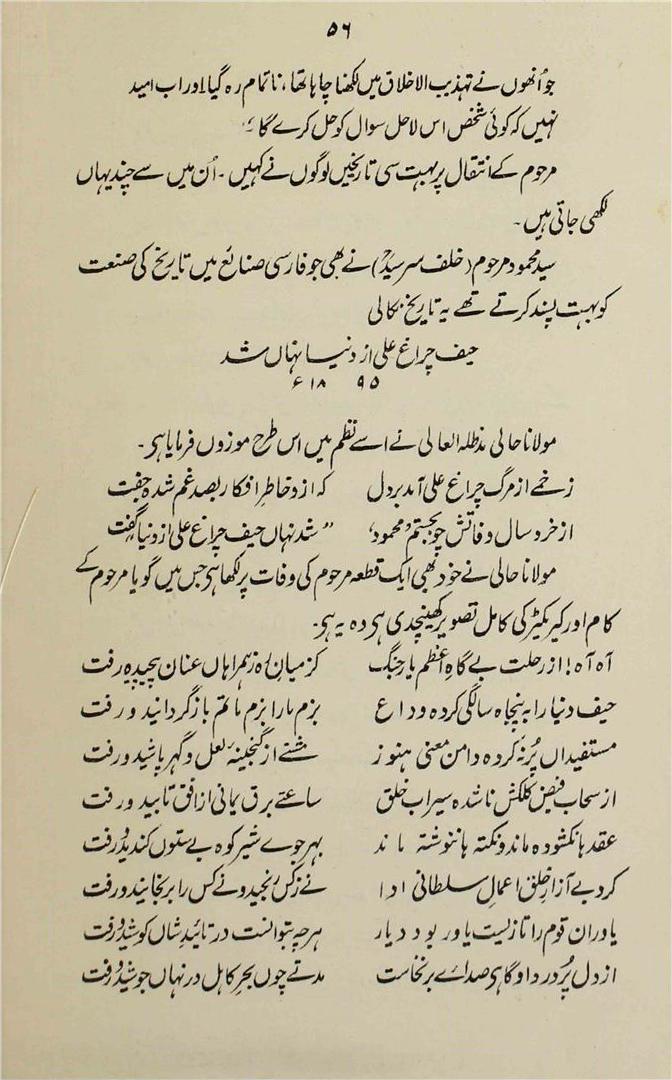 ۵۶
جو اُنھوں نے تہذیب الاخلاق میں لکھنا چاہا تھا، ناتمام رہ گیا اور اب امید
نہیں کہ کوئی شخص اس لاحل سوال کو حل کرے گا؛
مرحوم کے انتقال پر بہت سی تاریخیں لوگوں نے کہیں۔ اُن میں سے چند یہاں
لکھی جاتی ہیں۔
سید محمود مرحوم (خلف سرسیدؒ) نے بھی جو فارسی صنائع میں تاریخ کی صنعت
کو بہت پسند کرتے تھے یہ تاریخ نکالی
حیف چراغ علی از دنیا نہاں شد
۱۸۹۵ء
مولانا حالی مدظلہ العالی نے اسے نظم میں اس طرح موزوں فرمایا ہی۔
زخمے از مرگ چراغ علی آمد بر دل کہ ازو خاطر افگار بصد غم شدہ جفت
از خرد سال وفاتش چو بجستم ”محمود“ ”شد نہاں حیف چراغ علی از دنیا“ گفت
مولانا حالی نے خود بھی ایک قطعہ مرحوم کی وفات پر لکھا ہی جس میں گویا مرحوم کے
کام اور کیریکٹر کی کامل تصویر کھینچدی ہی وہ یہ ہی۔
آہ آہ! از رحلت بے گاہِ اعظم یار جنگ کز میانِ رہ ز ہمراہاں عنان پیچیدہ رفت
حیف دنیا را بہ پنجاہ سالگی کردہ وداع بزم ما را بزم ماتم باز گردانید و رفت
مستفیداں پُر نہ کردہ دامن معنی ہنوز مشتے از گنجینۂ لعل و گہر پاشید و رفت
از سحاب فیض کلکش ناشدہ سیراب خلق ساعتے برق یمانی از افق تابید و رفت
عقدہا نکشودہ ماند و نکتہ ہا ننوشتہ ماند بہر جوے شیر کوہ بے ستوں کندید و رفت
کرد بے آزارِ خلق اعمالِ سلطانی ادا نے ز کس رنجید و نے کس را برنجانید و رفت
یاوران قوم را تا زیست یاور بود و یار ہرچہ بتوانست در تائید شاں کوشید و رفت
از دل پُر درد او گاہی صداے برنخاست مدتے چوں بحر کاہل در نہاں جوشید و رفت